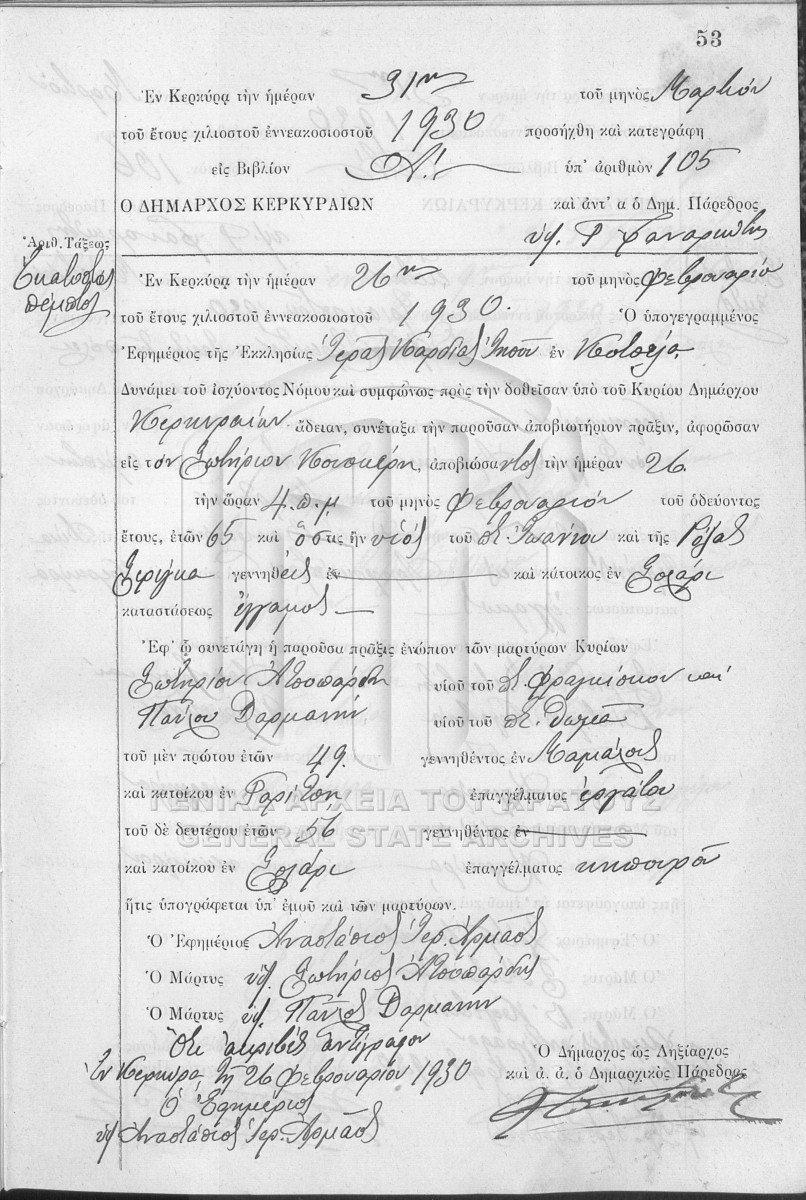 53
Ἐν Κερκύρᾳ τὴν ἡμέραν 31ην τοῦ μηνὸς Μαρτίου
τοῦ ἔτους χιλιοστοῦ ἐννεακοσιοστοῦ 1930 προσήχθη καὶ κατεγράφη
εἰς Βιβλίον Α! ὑπ' ἀριθμὸν 105
Ο ΔΗΜΑΡΧΟΣ ΚΕΡΚΥΡΑΙΩΝ καὶ ἀντ' α ὁ Δημ. Πάρεδρος
Ἀριθ. Τάξεως
Ἑκατοστὸς
πέμπτος
Ἐν Κερκύρᾳ τὴν ἡμέραν 26ην τοῦ μηνὸς Φεβρουαρίου
τοῦ ἔτους χιλιοστοῦ ἐννεακοσιοστοῦ 1930. Ὁ ὑπογεγραμμένος
Ἐφημέριος τῆς Ἐκκλησίας Ἱερᾶς Καρδίας Ἰησοῦ ἐν
Δυνάμει τοῦ ἰσχύοντος Νόμου καὶ συμφώνως πρὸς τὴν δοθεῖσαν ὑπὸ τοῦ Κυρίου Δημάρχου
Κερκυραίων ἄδειαν, συνέταξα τὴν παροῦσαν ἀποβιωτήριον πρᾶξιν, ἀφορῶσαν
εἰς τὸν Σωτήριον ἀποβιώσαντος τὴν ἡμέραν 26
τὴν ὥραν 4 π.μ. τοῦ μηνὸς Φεβρουαρίου τοῦ ὁδεύοντος
ἔτους, ἐτῶν 65 καὶ ὅστις ἦν υἱὸς τοῦ Ἰωάννου καὶ τῆς Ρόζας
γεννηθεὶς ἐν καὶ κάτοικος ἐν Σολάρι
καταστάσεως ἔγγαμος
Ἐφ' ᾧ συνετάγη ἡ παροῦσα πρᾶξις ἐνώπιον τῶν μαρτύρων Κυρίων
Σωτηρίου Ἀτσοπάρδη υἱοῦ τοῦ Φραγκίσκου καὶ
Παύλου Δαρμανίν υἱοῦ τοῦ Θωμᾶ
τοῦ μὲν πρώτου ἐτῶν 49. γεννηθέντος ἐν
καὶ κατοίκου ἐν Γαρίτσῃ ἐπαγγέλματος ἐργάτου
ΓΕΝΙΚΑ ΑΡΧΕΙΑ ΤΟΥ ΚΡΑΤΟΥΣ
τοῦ δὲ δευτέρου ἐτῶν 56 γεννηθέντος ἐν
GENERAL STATE ARCHIVES
καὶ κατοίκου ἐν Σολάρι ἐπαγγέλματος κηπουροῦ
ἥτις ὑπογράφεται ὑπ' ἐμοῦ καὶ τῶν μαρτύρων.
Ὁ Ἐφημέριος Ἀναστάσιος Ἱερ. Ἀρμᾶος
Ὁ Μάρτυς ὑπ. Σωτήριος Ἀτσοπάρδης
Ὁ Μάρτυς ὑπ. Παῦλος Δαρμανίν
Ὅτι ἀκριβὲς ἀντίγραφον
Ἐν Κερκύρᾳ τῇ 26 Φεβρουαρίου 1930
Ὁ Ἐφημέριος
ὑπ. Ἀναστάσιος Ἱερ. Ἀρμᾶος
Ὁ Δήμαρχος ὡς Ληξίαρχος
καὶ ἀ. ἀ. ὁ Δημαρχικὸς Πάρεδρος